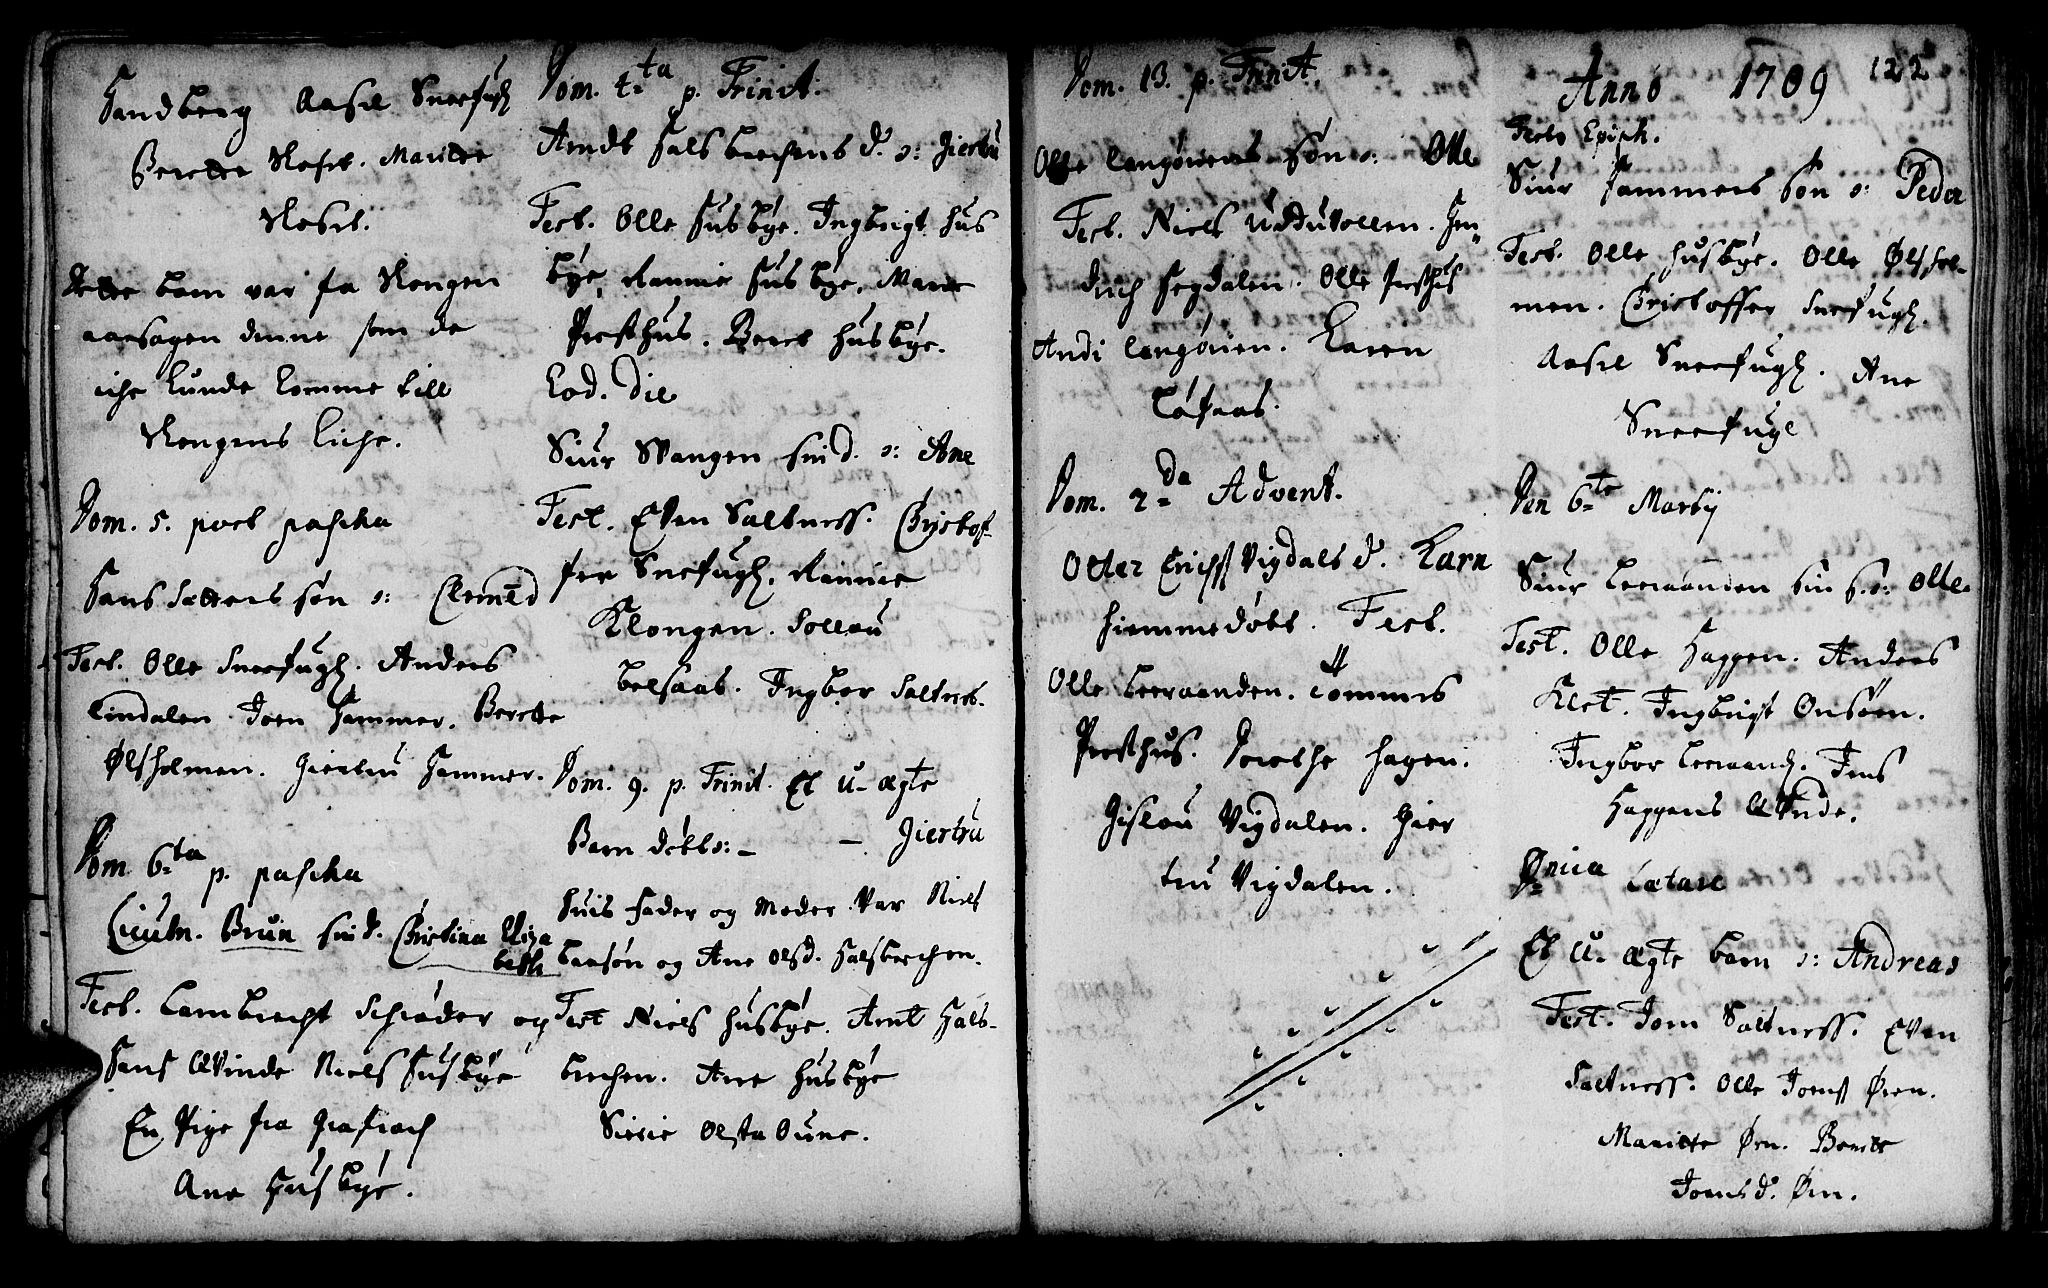 Sandberg Aasel Sneefugl
Berette Rosset. Maritte
Rosset.
Dette barn var fra Rongen
aarsagen denne som de
iche kunde komme till
Rongens Kirche.
Dom. 5. post pascha
Hans Sætters søn n: Clemed
Test. Olle Sneefugl. Anders
Lindalen. Joen Hammer. Berette
Ølsholmen. Giertru Hammer.
Dom 6ta p. pascha
Lieutn. Brun sin d. Christina Eliza
beth
Test. Lambrecht Schrøder og
Hans Qvinde Niels Husbye
En Pige fra
Ane Husbye.
Dom. 4ta p. Trinit:
Arndt Halsbrechens d. n: Giertru
Test. Olle Husbye. Ingbrigt Hus
bye, Rannie Husbye, Marit
Presthus. Beret Husbye.
Eod. Die
Siur Wangen sin d. n: Ane
Test. Even Saltness. Christof-
fer Sneefugl. Rannie
Klongen. Sollau
belsaas. Ingbor Saltnes.
Dom. 9. p. Trinit. Et u-ægte
Barn døbt n: - - Giertru
Huis Fader og Moder var Niels
Larsøn og Ane Olsd. Halsbrechen.
Test Niels Husbye. Arnt Hals-
brechen. Ane Husbye
Sirie Olsta Oune.
Dom. 13. p. Trinit.
Olle Langørens søn n: Olle
Test. Niels Udduvollen. Hen
drich Segdalen. Olle Presthus
Andi Langøren. Karen
Løfaas.
Dom. 2da Advent.
Otter Erichs Vigdals d. Karn
hiemmedøbt. Test.
Olle Leeraanden. Tommis
Presthus. Dorethe Hagen.
Gislau Vigdalen. Gier
tru Vigdalen.
122
Anno 1709
Festo Epiph.
Siur Hammers søn n: Peder
Test. Olle Husbye. Olle Ølshol-
men. Christoffer Sneefugl.
Aasel Sneefugl. Ane
Sneefugl
Den 6te Martij
Siur Leeraanden sin s. n: Olle.
Test. Olle Haggen. Anders
Klet. Ingbrigt Onsøen.
Ingbor Leeraand. Jens
Haggens Qvinde.
Dnica Lætare
Et u-ægte barn n: Andreas
Test. Joen Saltness. Even
Saltness. Olle Joens Øren.
Maritte Øren. Beritte
Joensd. Øren.